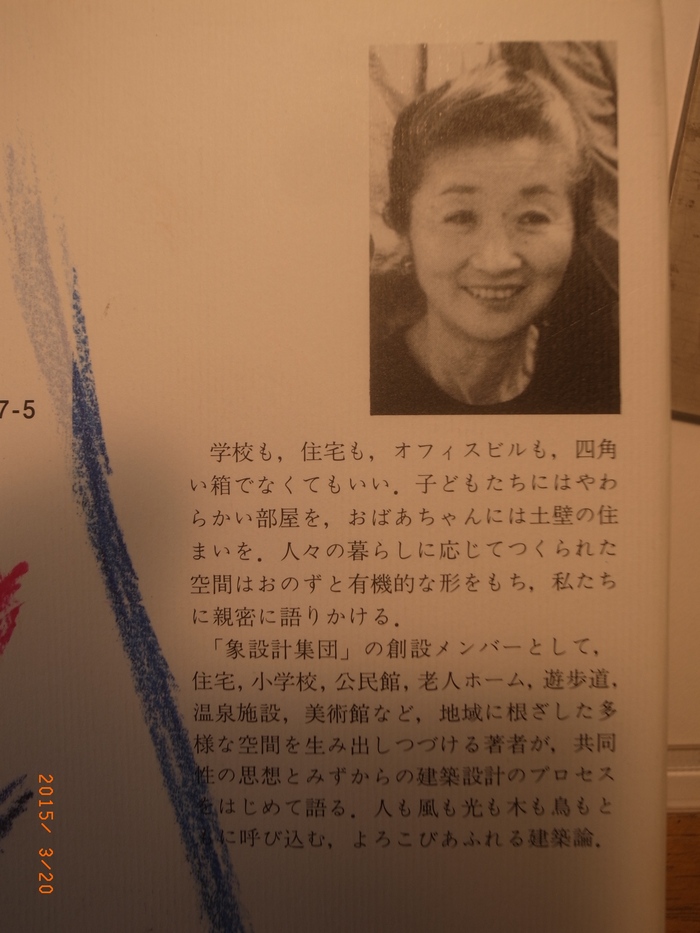 7-5
学校も，住宅も，オフィスビルも，四角
い箱でなくてもいい．子どもたちにはやわ
らかい部屋を，おばあちゃんには土壁の住
まいを．人々の暮らしに応じてつくられた
空間はおのずと有機的な形をもち，私たち
に親密に語りかける．
「象設計集団」の創設メンバーとして，
住宅，小学校，公民館，老人ホーム，遊歩道，
温泉施設，美術館など，地域に根ざした多
様な空間を生み出しつづける著者が，共同
性の思想とみずからの建築設計のプロセス
をはじめて語る．人も風も光も木も鳥もと
もに呼び込む，よろこびあふれる建築論．
2015/ 3/20